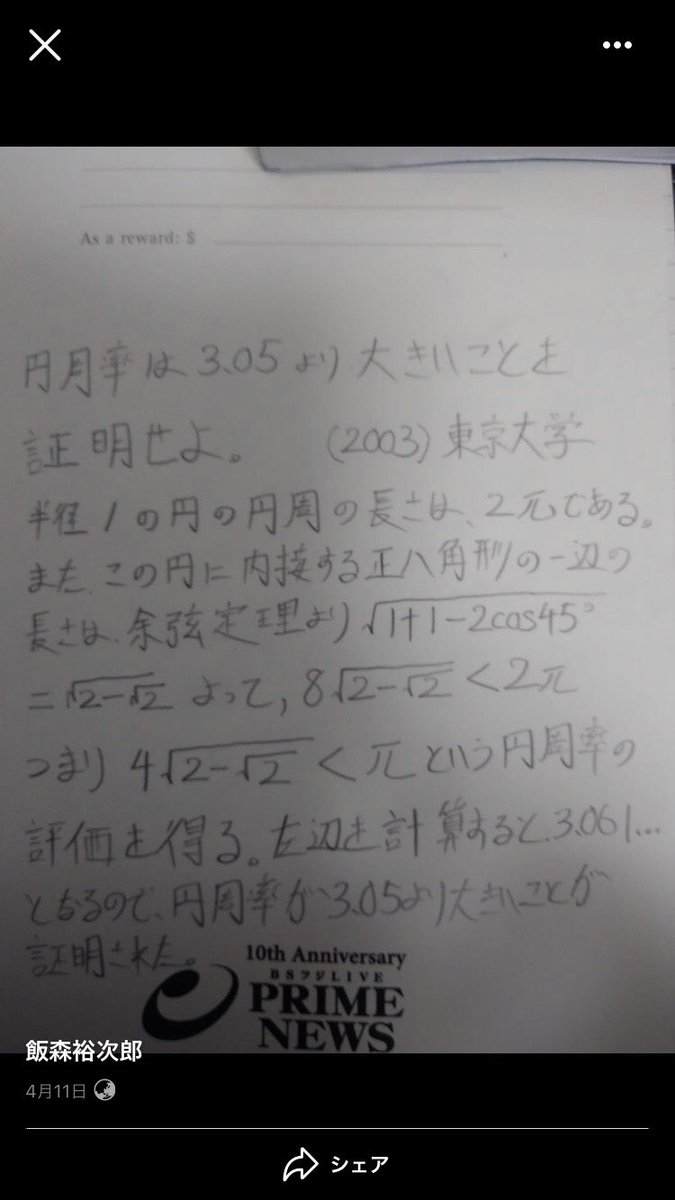 As a reward: $
円周率は3.05より大きいことを
証明せよ。 (2003) 東京大学
半径1の円の円周の長さは、2πである。
また、この円に内接する正八角形の一辺の
長さは、余弦定理より√1+1-2cos45°
=√2-√2 よって, 8√2-√2<2π
つまり 4√2-√2<πという円周率の
評価を得る。左辺を計算すると、3.061...
となるので、円周率が3.05より大きいことが
証明された。
10th Anniversary
BSフジLIVE
PRIME
NEWS
飯森裕次郎
4月11日
シェア